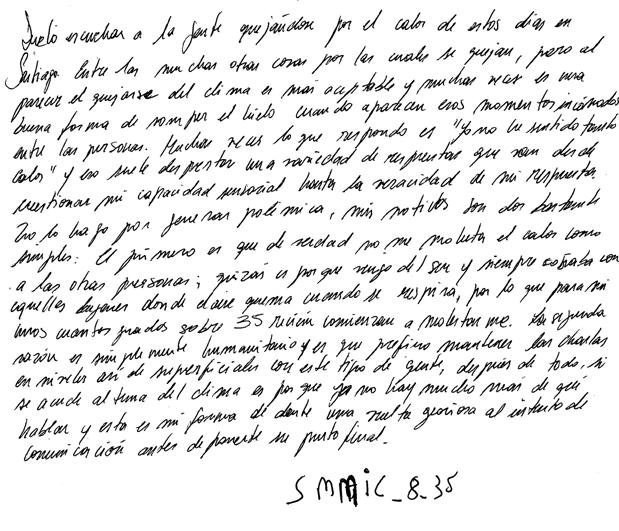 Suelo escuchar a la gente quejándose por el calor de estos días en
Santiago. Entre las muchas otras cosas por las cuales se quejan, pero al
parecer el quejarse del clima es mas aceptable y muchas veces es una
buena forma de romper el hielo cuando aparecen esos momentos incómodos
entre las personas. Muchas veces lo que respondo es "Yo no he sentido tanto
calor" y eso suele despertar una variedad de respuestas que van desde
cuestionar mi capacidad sensorial hasta la veracidad de mi respuesta.
No lo hago por generar polémica, mis motivos son dos bastante
simples: El primero es que de verdad no me molesta el calor como
a las otras personas; quizás es porque vengo del sur y siempre
aquellos lugares donde el aire quema cuando se respira, por lo que para mi
unos cuantos grados sobre 35 recién comienzan a molestarme. La segunda
razón es simplemente humanitario y es que prefiero mantener las charlas
en niveles así de superficiales con este tipo de gente, después de todo, si
se acude al tema del clima es porque ya no hay mucho más de que
hablar y esta es mi forma de darle una vuelta graciosa al intento de
comunicación antes de ponerle su punto final.
SMMIC_8_35